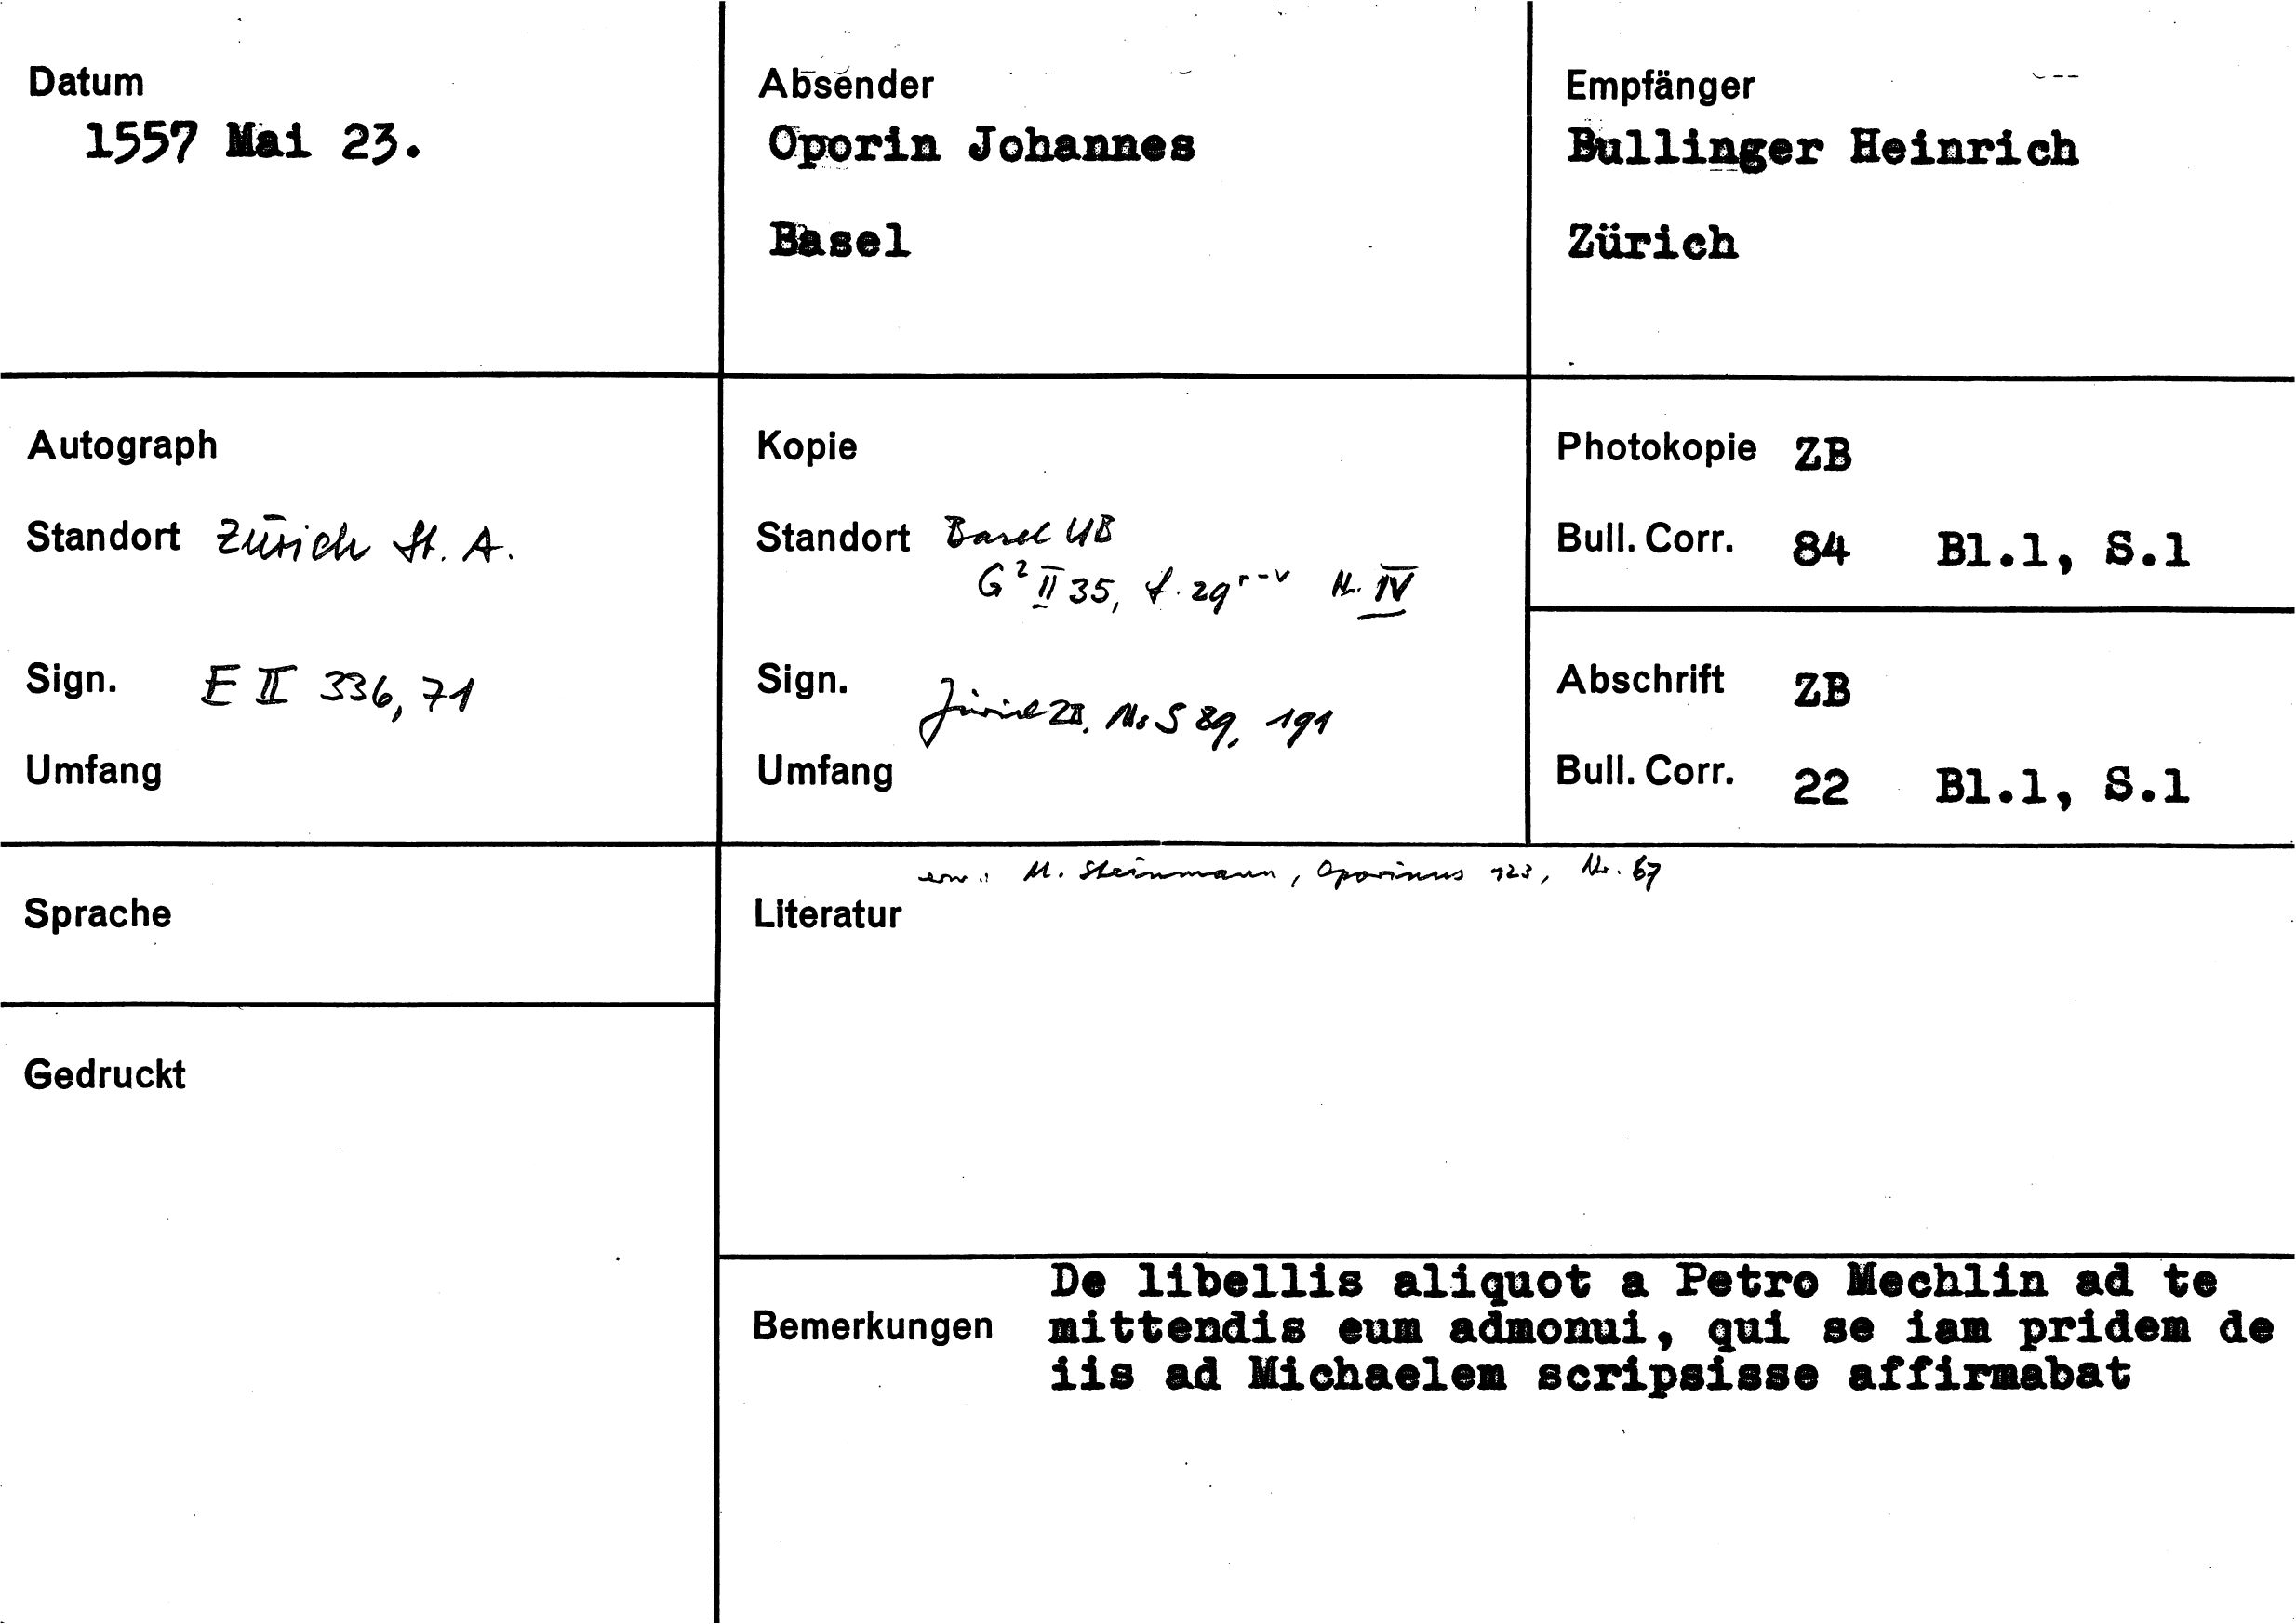 Datum
1557 Mai 23.
Absender
Oporin Johannes
Basel
Empfänger
Bullinger Heinrich
Zürich
Autograph
Standort Zürich St. A.
Sign. E II 336, 71
Umfang
Kopie
Standort Basel UB
G² II 35, f. 29 r-v N. IV
Sign. Zürich ZB. Ms S 89, 191
Umfang
Photokopie ZB
Bull. Corr. 84 Bl.1, S.1
Abschrift ZB
Bull. Corr. 22 Bl.1, S.1
Sprache
Gedruckt
erw.: M. Steinmann, Oporinus 123, Nr. 67
Literatur
De libellis aliquot a Petro Mechlin ad te
Bemerkungen mittendis eum admonui, qui se iam pridem de
iis ad Michaelem scripsisse affirmabat